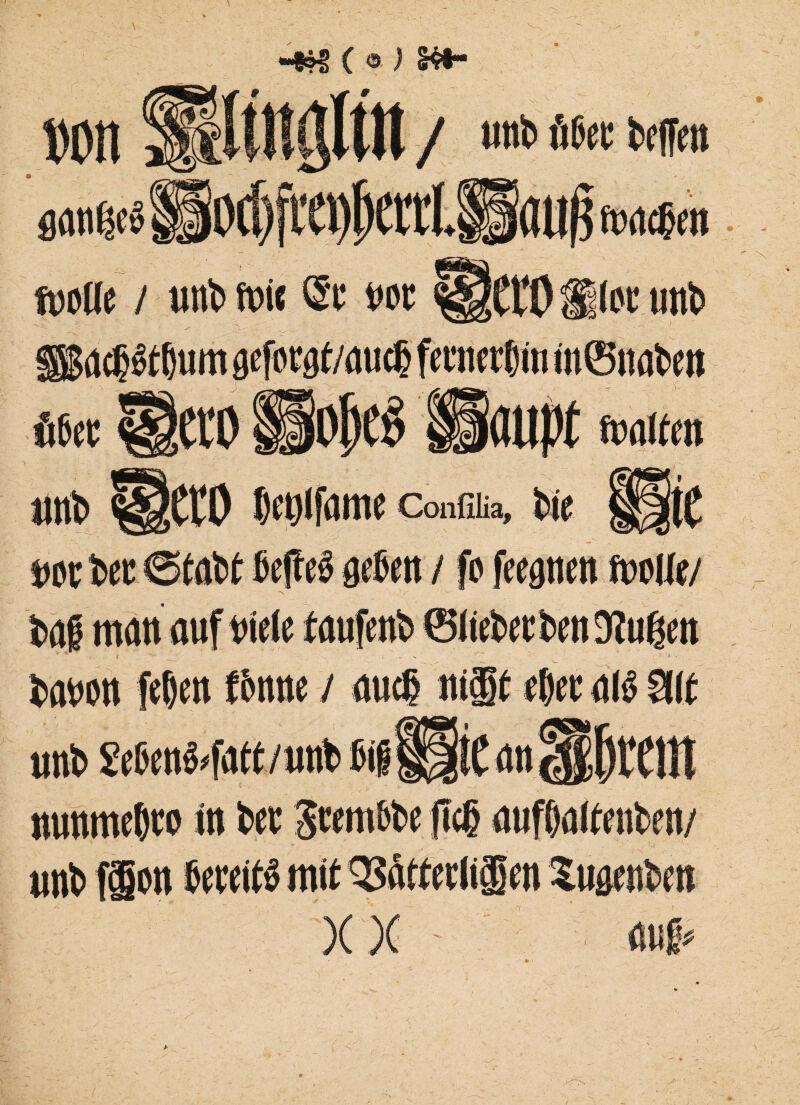 ( )
von Klinglin / und über dessen
gantzes Hochfreyherrl. Hauß wachen
wolle / und wie Er vor Dero Flor und
Wachsthum gesorgt/auch fernerhin in Gnaden
über Dero Hohes Haupt walten
und Dero heylsame Consilia, die Sie
vor der Stadt bestes geben / so seegnen wolle/
daß man auf viele tausend Glieder den Nutzen
davon sehen könne / auch nicht eher als Alt
und Lebens-satt/und biß Sie an Ihrem
nunmehro in der Frembde sich aufhaltenden/
und schon bereits mit Vätterlichen Tugenden
)( )( auß-